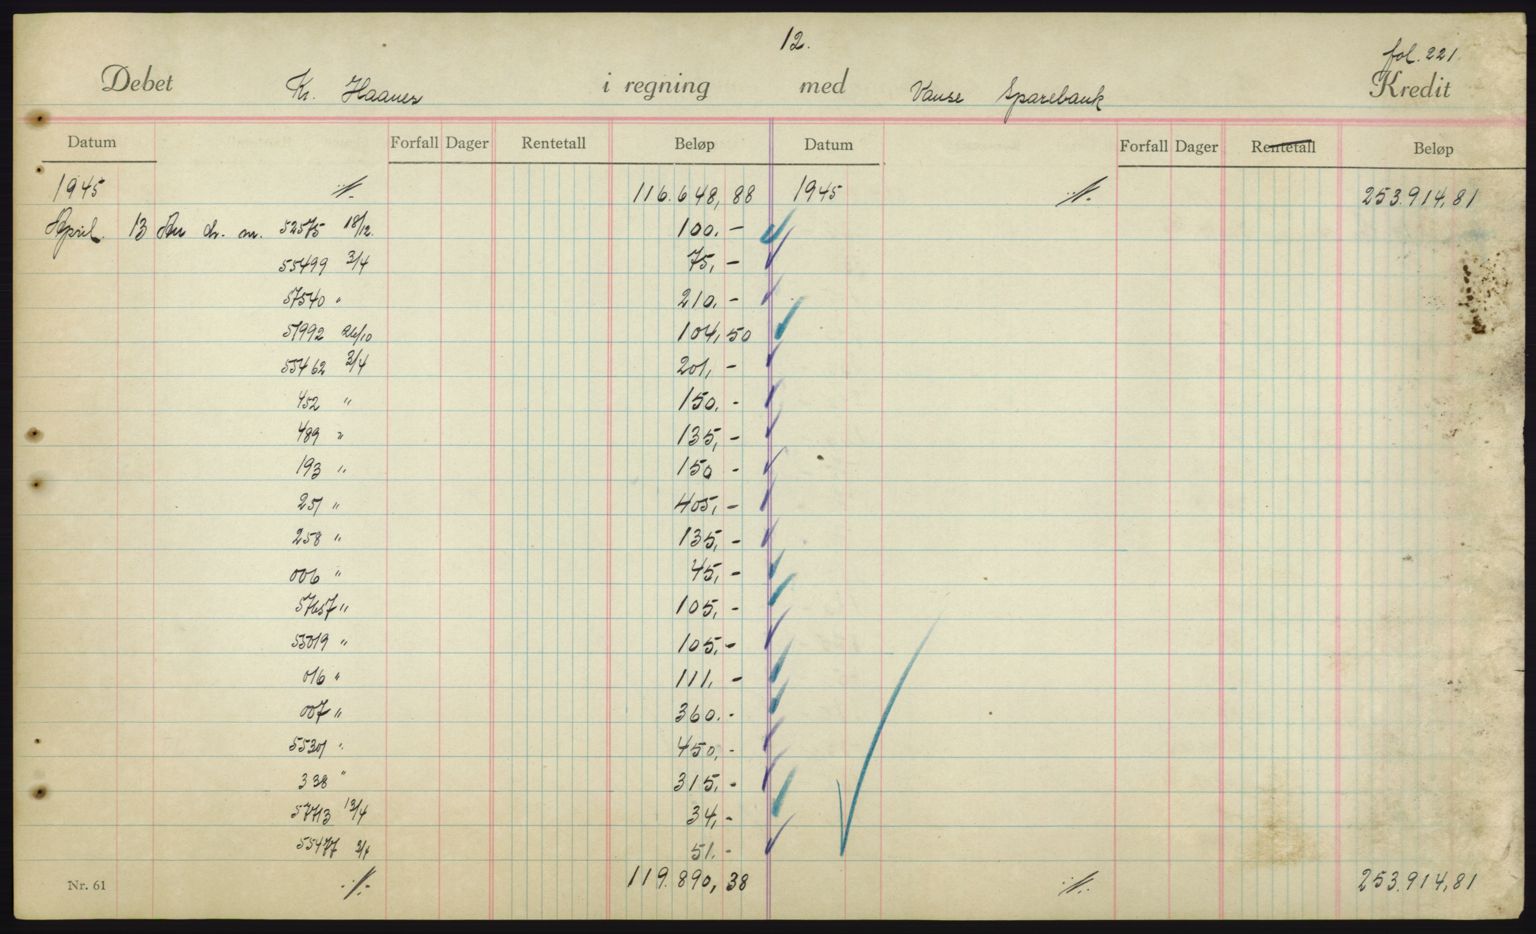 12.
fol. 221.
Debet Kr. Haanes i regning med Vanse Sparebank Kredit
Datum Forfall Dager Rentetall Beløp Datum Forfall Dager Rentetall Beløp
1945 ·/· 116.648,88 1945 ·/· 253.914,81
April 13 An ch. on. 52575 18/12. 100.-
55499 3/4 75,-
57540 " 210,-
51992 26/10 104,50
55462 3/4 201,-
452 " 150,-
489 " 135,-
193 " 150 -
251 " 405,-
258 " 135,-
006 " 45,-
57657 " 105,-
55019 " 105,-
016 " 111,-
007 " 360.-
55301 " 450,-
338 " 315,-
57713 13/4 34,-
55477 3/4 51.-
Nr. 61 ·/· 119.890,38 ·/· 253.914,81